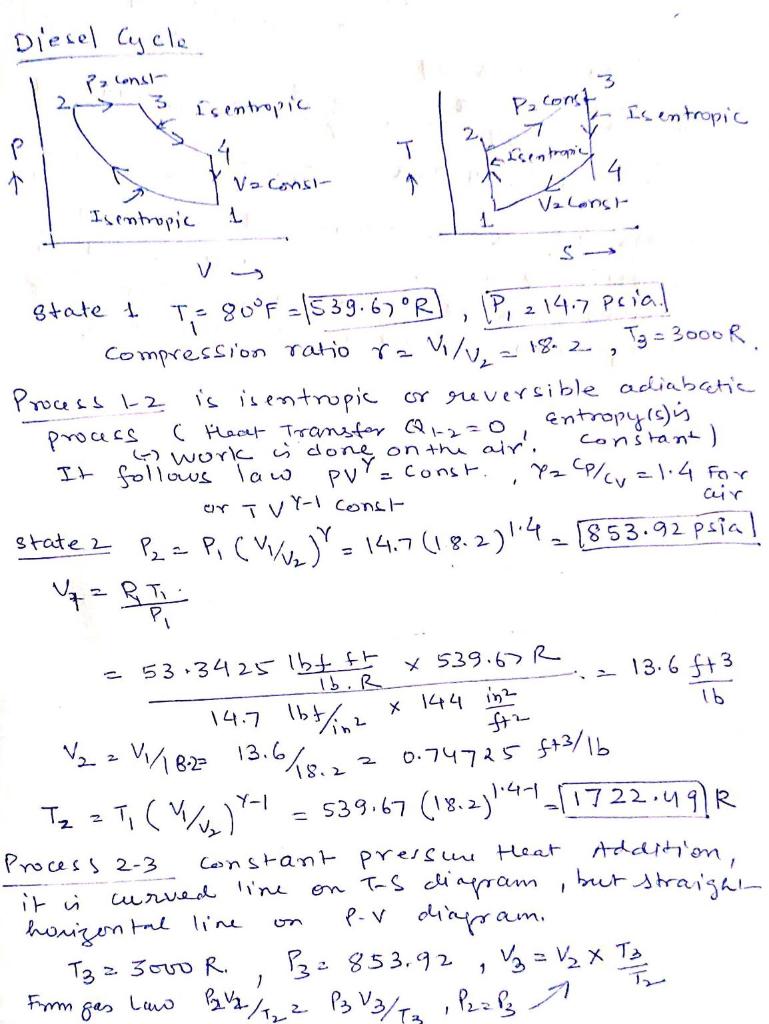 Diesel Cycle
P = const
2 3 Isentropic
P ↑
4
V = const
Isentropic 1
V →
3
P = const
Isentropic
2
T ↑
Isentropic
4
V = const
1
S →
State 1 T₁ = 80°F = 539.67°R , P₁ = 14.7 psia.
Compression ratio r = V₁/V₂ = 18.2 , T₃ = 3000 R.
Process 1-2 is isentropic or reversible adiabatic
process ( Heat Transfer Q₁₋₂ = 0 , Entropy (s) is
(-) work is done on the air. constant )
It follows law PV^γ = const. , γ = Cp/Cv = 1.4 For
air
or T V^γ-1 const
State 2 P₂ = P₁ (V₁/V₂)^γ = 14.7 (18.2)^1.4 = 853.92 psia
V₁ = R T₁ / P₁
= 53.3425 lbf ft / lb. R × 539.67 R / 14.7 lbf/in² × 144 in²/ft² = 13.6 ft3/lb
V₂ = V₁/18.2 = 13.6/18.2 = 0.74725 ft3/lb
T₂ = T₁ (V₁/V₂)^γ-1 = 539.67 (18.2)^1.4-1 = 1722.49 R
Process 2-3 constant pressure Heat Addition,
it is curved line on T-S diagram , but straight
horizontal line on P-V diagram.
T₃ = 3000 R. , P₃ = 853.92 , V₃ = V₂ × T₃/T₂
From gas Law P₂V₂/T₂ = P₃V₃/T₃ , P₂ = P₃